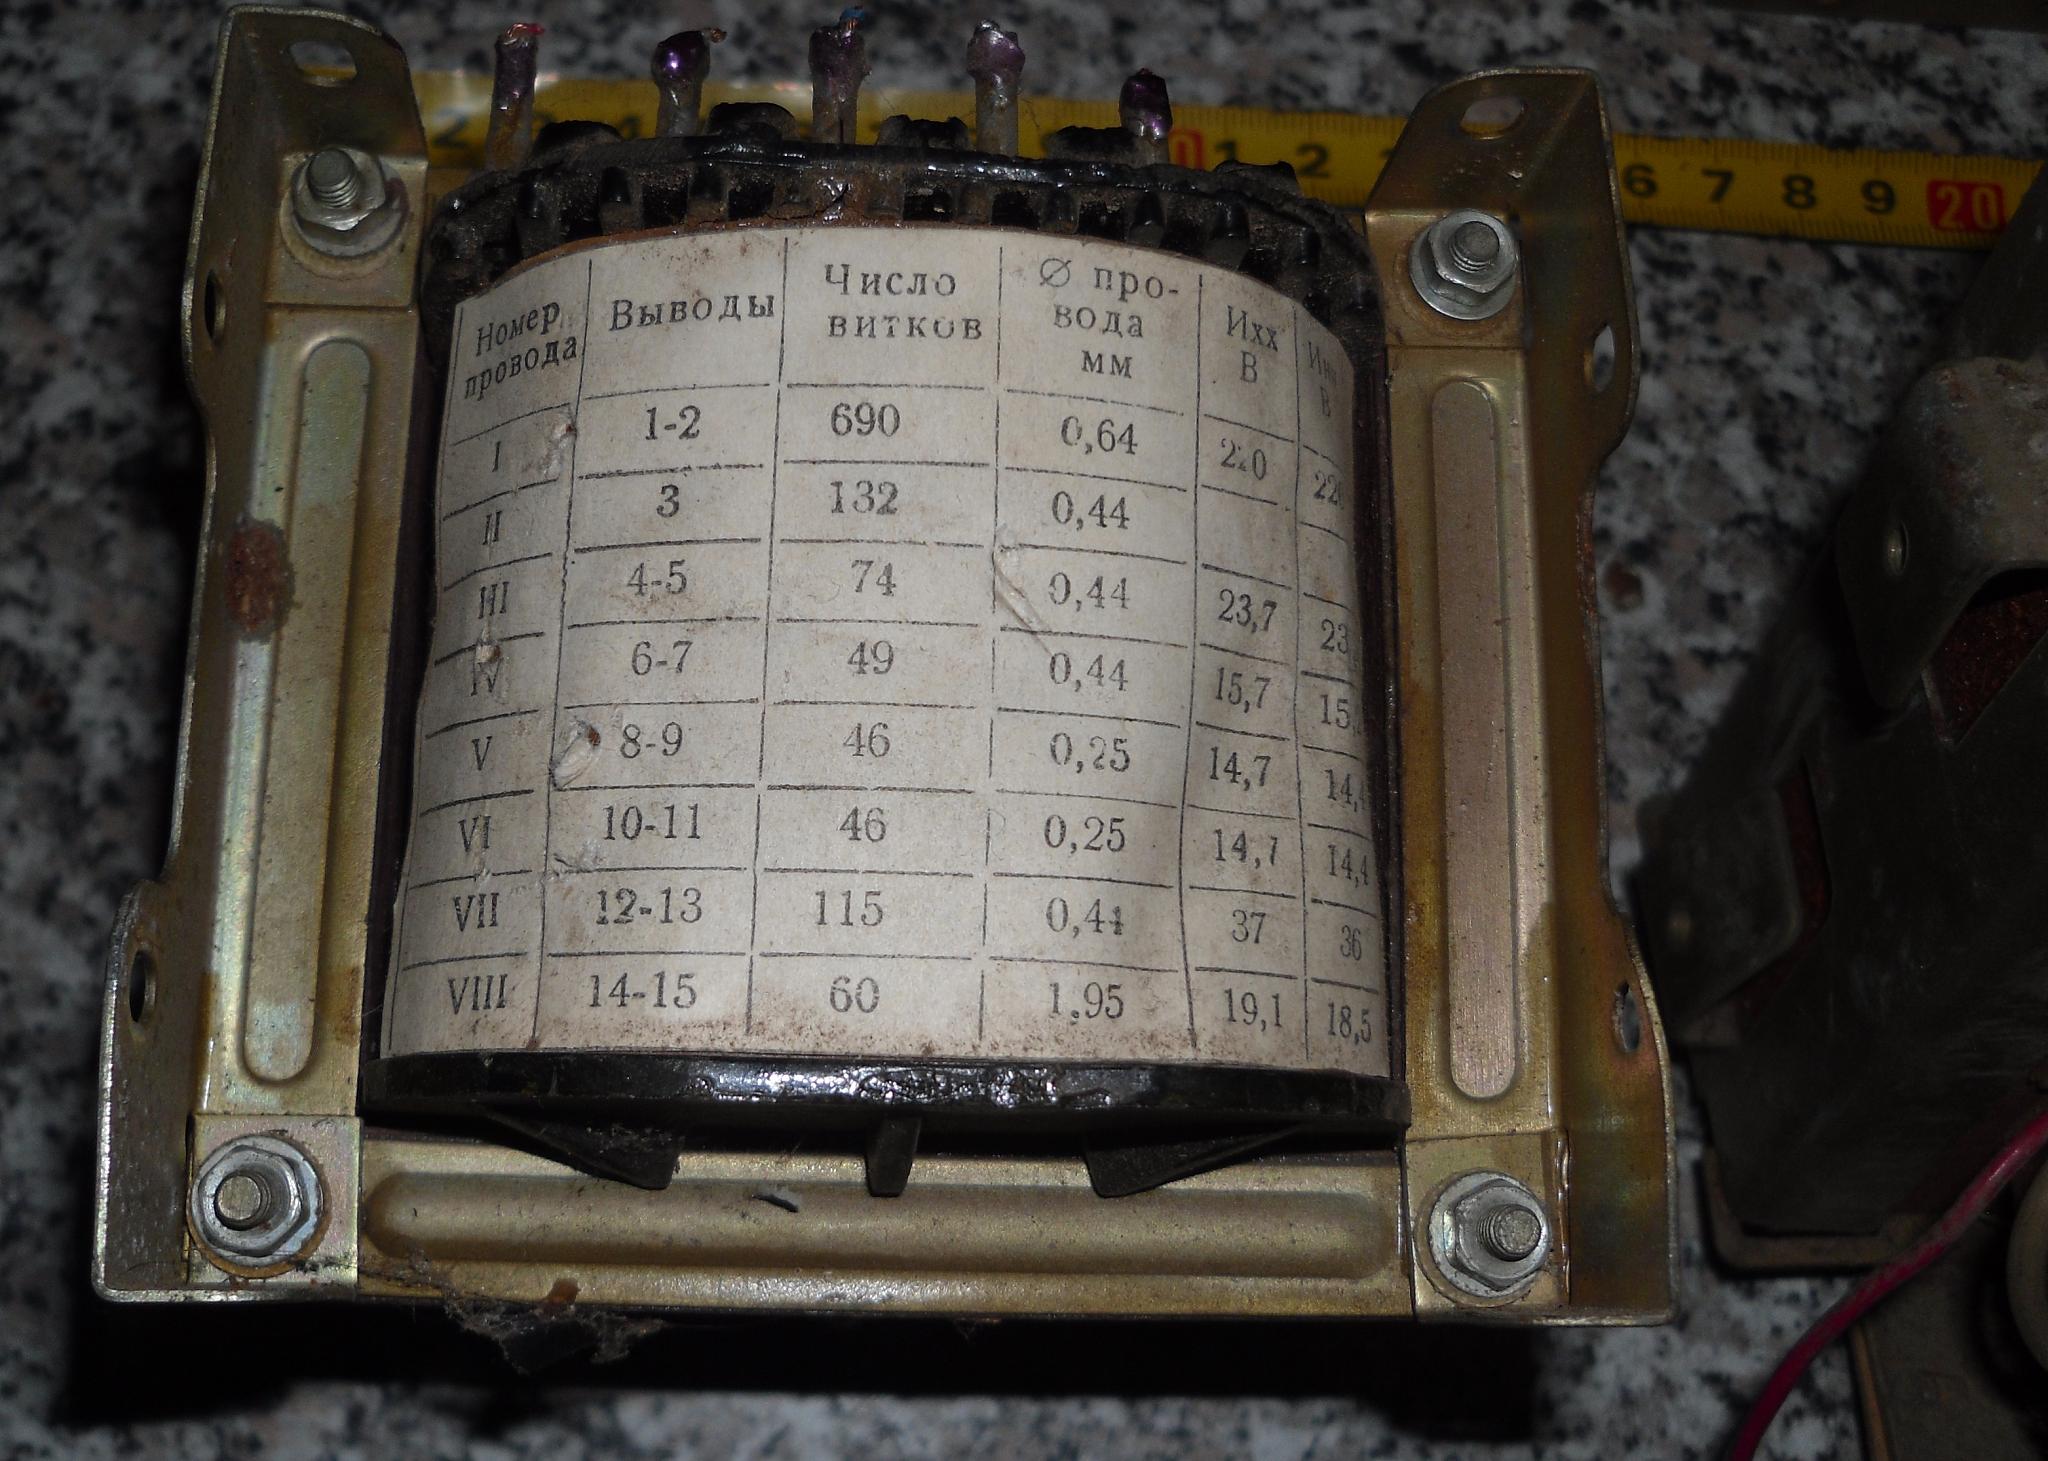 Номер провода Выводы Число витков Ø про-вода мм Ихх В
I 1-2 690 0,64 220
II 3 132 0,44
III 4-5 74 0,44 23,7 23
IV 6-7 49 0,44 15,7 15,
V 8-9 46 0,25 14,7 14,4
VI 10-11 46 0,25 14,7 14,4
VII 12-13 115 0,44 37 36
VIII 14-15 60 1,95 19,1 18,5
1 2 6 7 8 9 20